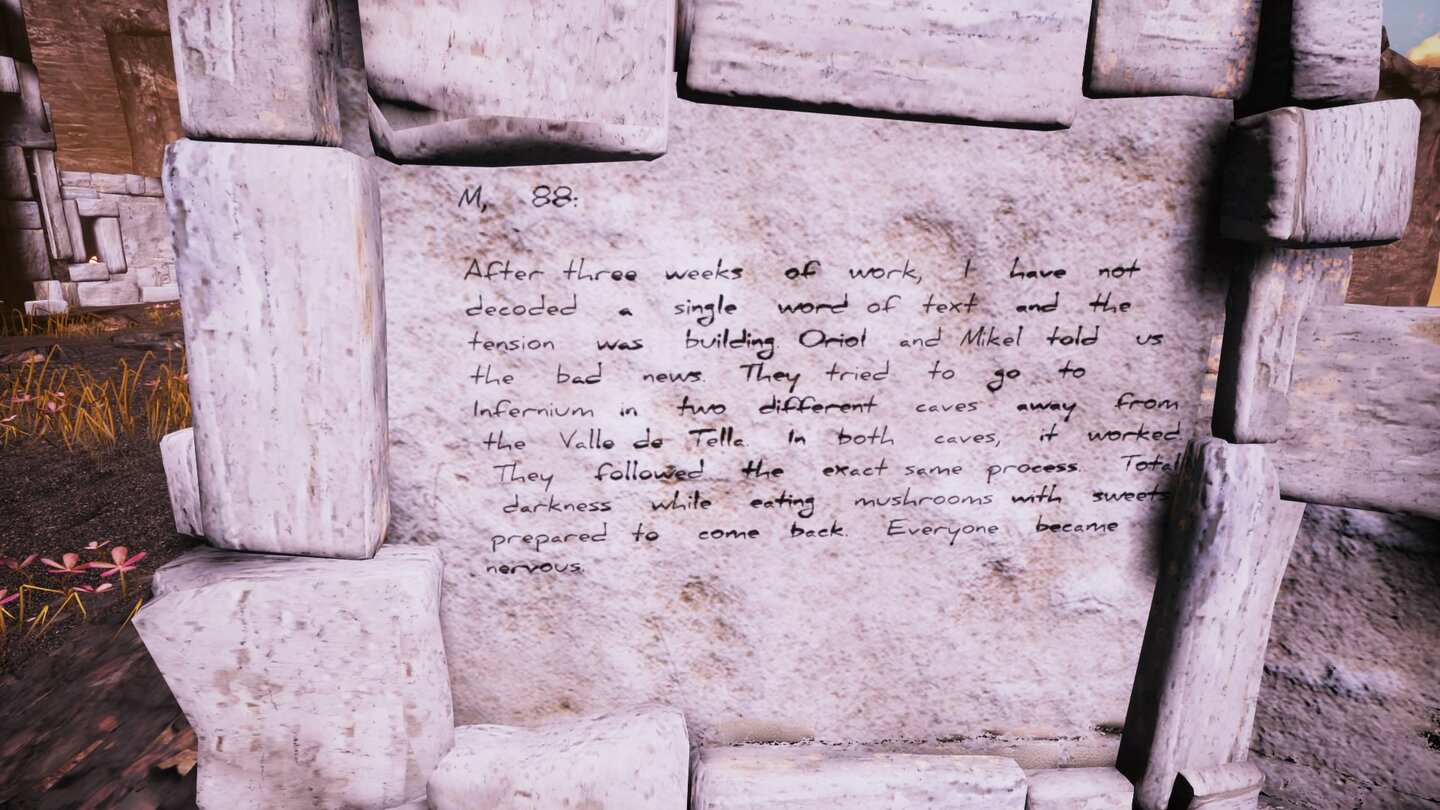 M, 88:
After three weeks of work, I have not
decoded a single word of text and the
tension was building Oriol and Mikel told us
the bad news. They tried to go to
Infernium in two different caves away from
the Valle de Tella. In both caves, it worked.
They followed the exact same process. Total
darkness while eating mushrooms with sweets
prepared to come back. Everyone became
nervous.